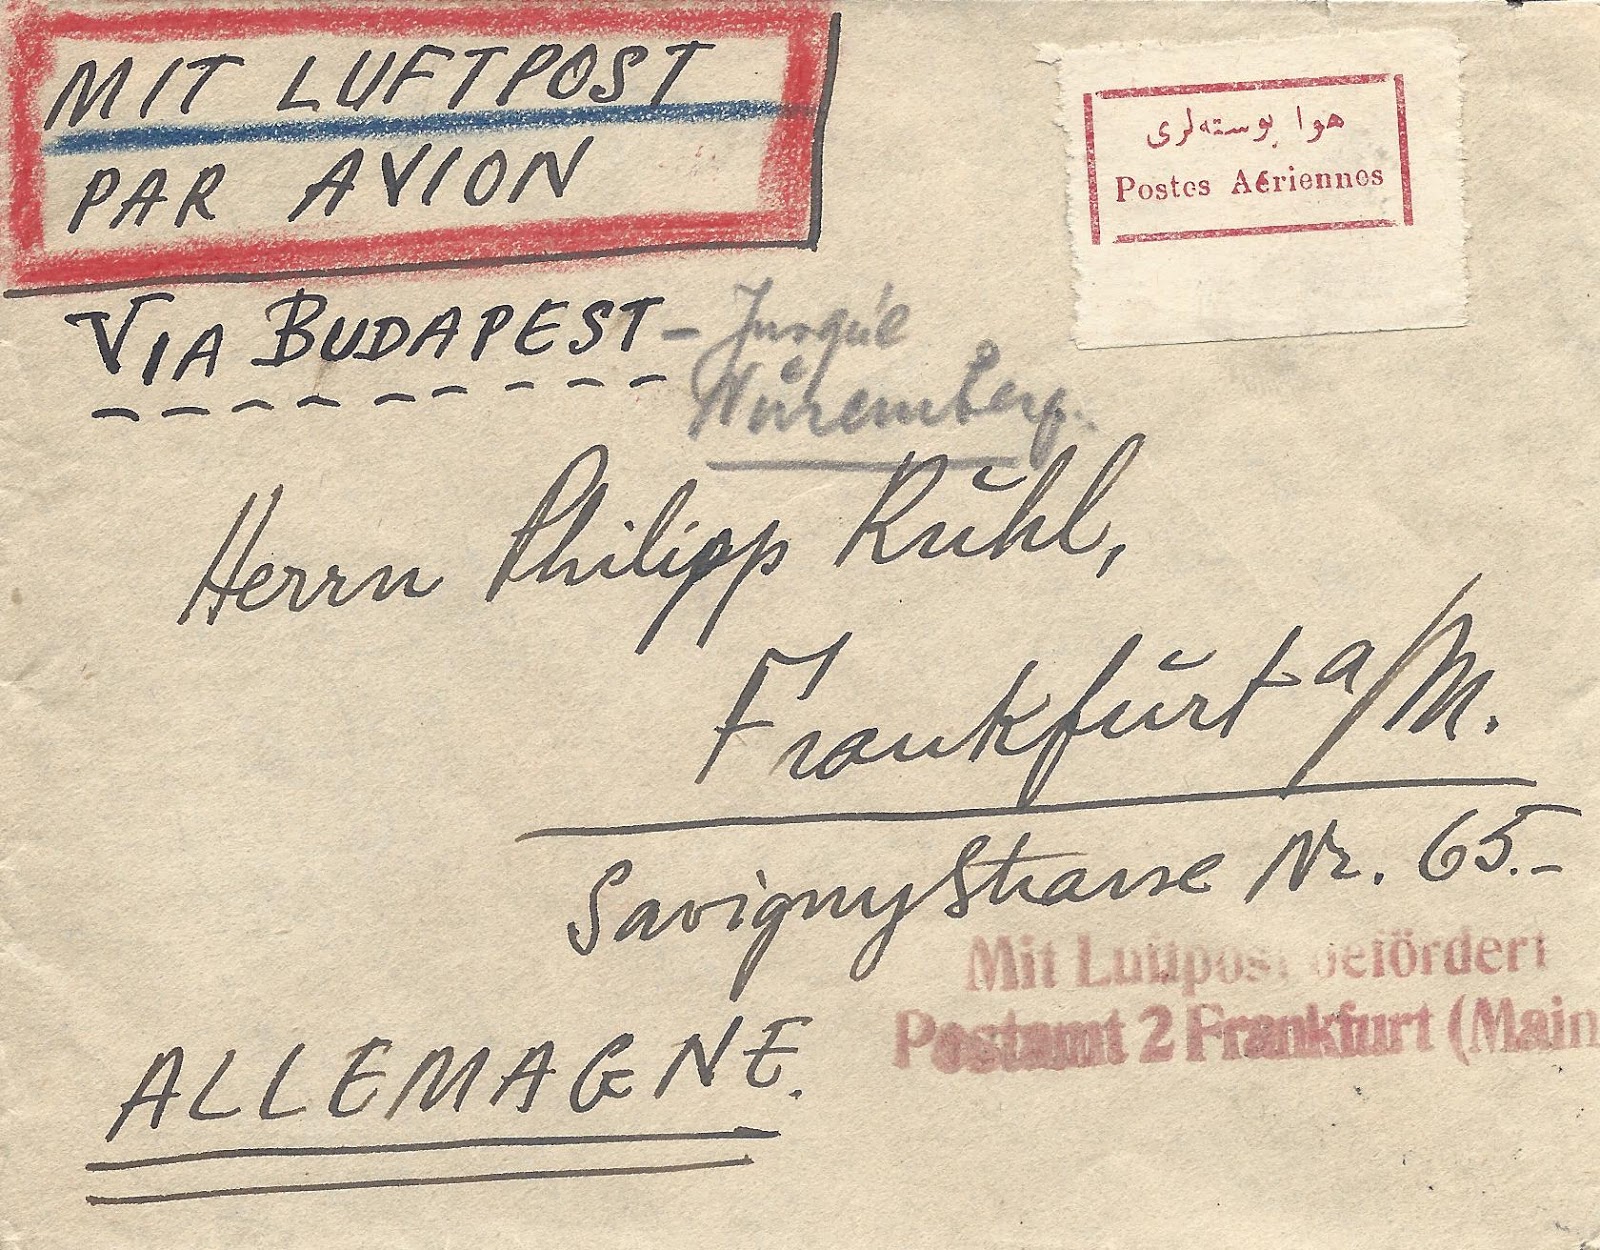 MIT LUFTPOST
PAR AVION
هوا پوسته‌لری
Postes Aériennes
VIA BUDAPEST – Jusqu'e
Nüremberg.
Herrn Philipp Rühl,
Frankfurt a/M.
Savignystrasse Nr. 65.–
Mit Luftpost befördert
Postamt 2 Frankfurt (Main
ALLEMAGNE.